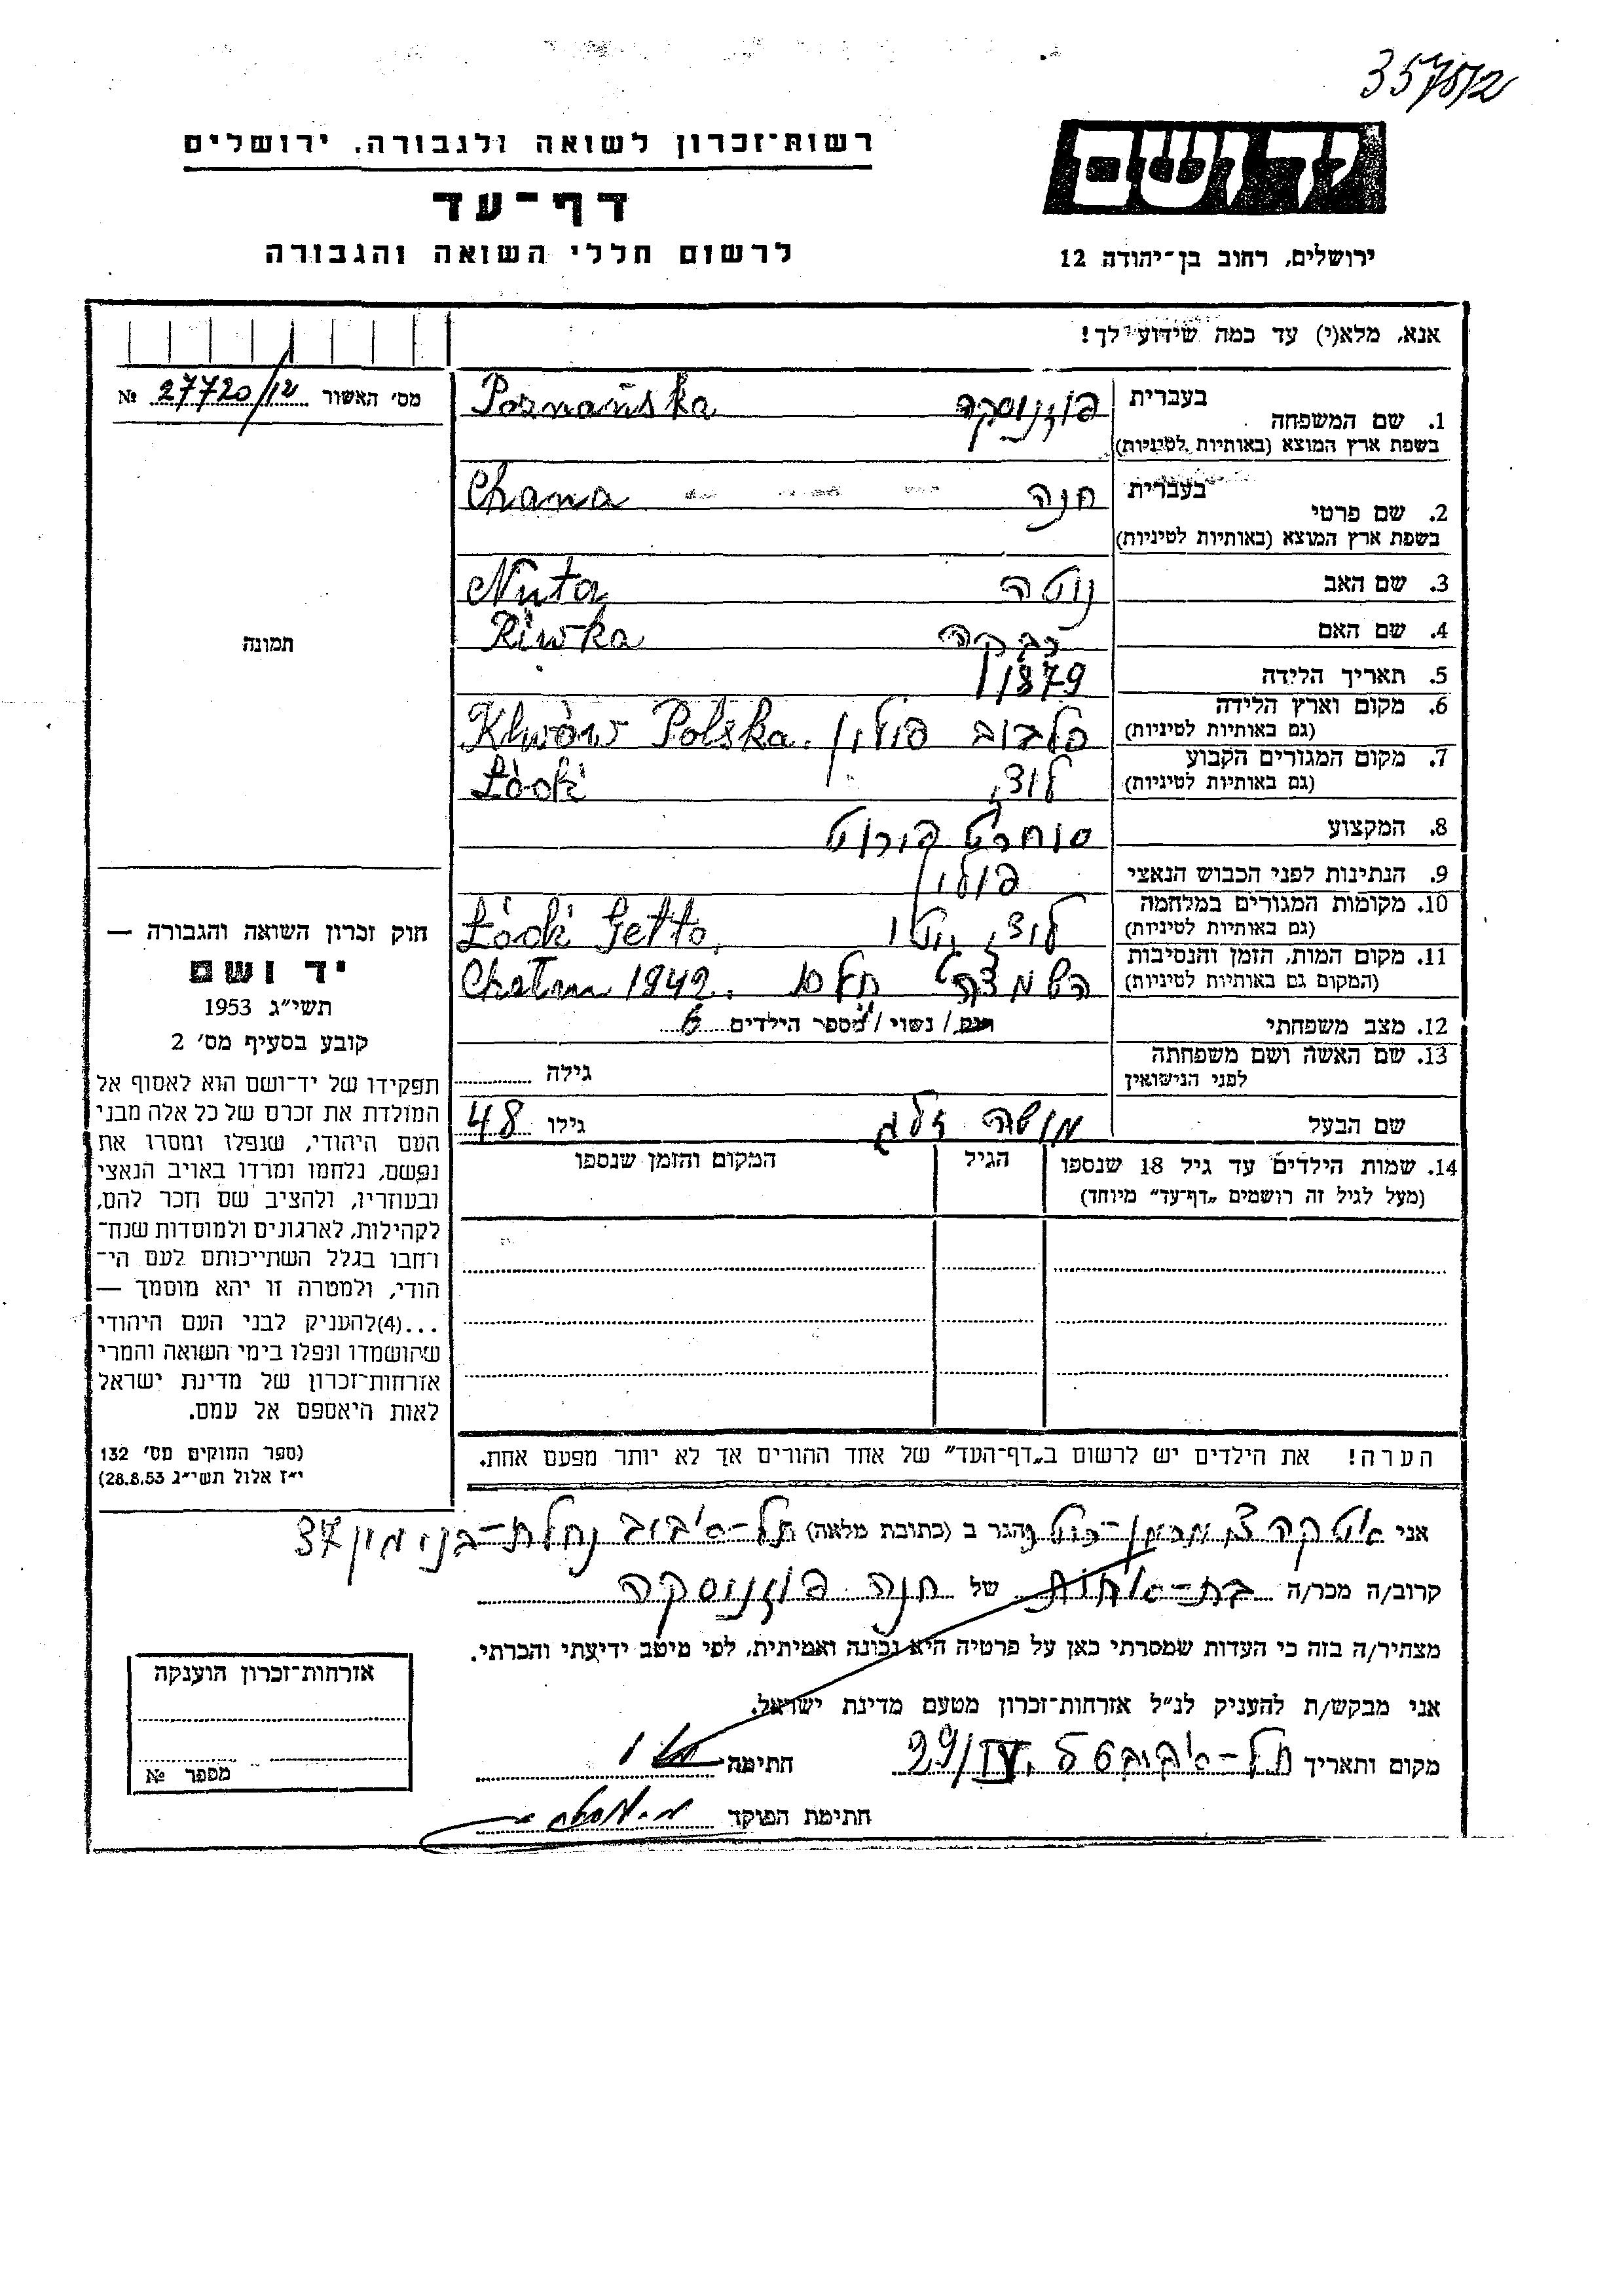 357512
רשות־זכרון לשואה ולגבורה, ירושלים
דף־עד
לרשום חללי השואה והגבורה
יד ושם
ירושלים, רחוב בן־יהודה 12
אנא, מלא(י) עד כמה שידוע לך!
מס' האשור 27720/12 №
1. שם המשפחה בעברית פוזנוסקה Poznańska
בשפת ארץ המוצא (באותיות לטיניות)
2. שם פרטי בעברית חנה Chana
בשפת ארץ המוצא (באותיות לטיניות)
3. שם האב נוטה Nuta
4. שם האם רבקה Riwka
5. תאריך הלידה 1879
6. מקום וארץ הלידה כלבוב פולין Klwów Polska.
(גם באותיות לטיניות)
7. מקום המגורים הקבוע לודז, Łódź
(גם באותיות לטיניות)
8. המקצוע
9. הנתינות לפני הכבוש הנאצי פולין
10. מקומות המגורים במלחמה לודז, גטו Łódź Getto,
(גם באותיות לטיניות)
11. מקום המות, הזמן והנסיבות Chełm 1942.
(המקום גם באותיות לטיניות)
12. מצב משפחתי רוק / נשוי / מספר הילדים 6
13. שם האשה ושם משפחתה גילה
לפני הנישואין
שם הבעל משה זלג גילו 48
14. שמות הילדים עד גיל 18 שנספו הגיל המקום והזמן שנספו
(מעל לגיל זה רושמים „דף־עד” מיוחד)
הערה! את הילדים יש לרשום ב„דף־העד” של אחד ההורים אך לא יותר מפעם אחת.
תמונה
חוק זכרון השואה והגבורה —
יד ושם
תשי״ג 1953
קובע בסעיף מס' 2
תפקידו של יד־ושם הוא לאסוף אל
המולדת את זכרם של כל אלה מבני
העם היהודי, שנפלו ומסרו את
נפשם, נלחמו ומרדו באויב הנאצי
ובעוזריו, ולהציב שם וזכר להם,
לקהילות, לארגונים ולמוסדות שנח־
רחבו בגלל השתייכותם לעם הי־
הודי, ולמטרה זו יהא מוסמך —
...(4)להעניק לבני העם היהודי
שהושמדו ונפלו בימי השואה והמרי
אזרחות־זכרון של מדינת ישראל
לאות היאספם אל עמם.
(ספר החוקים מס' 132
י״ז אלול תשי״ג 28.8.53)
אני הגר ב (כתובת מלאה) תל־אביב נחלת־בנימין 37
קרוב/ה מכר/ה בת־אחות של חנה פוזנוסקה
מצהיר/ה בזה כי העדות שמסרתי כאן על פרטיה היא נכונה ואמיתית, לפי מיטב ידיעתי והכרתי.
אני מבקש/ת להעניק לנ״ל אזרחות־זכרון מטעם מדינת ישראל.
מקום ותאריך תל־אביב 29/IV חתימה
חתימת הפוקד
אזרחות־זכרון הוענקה
מספר №